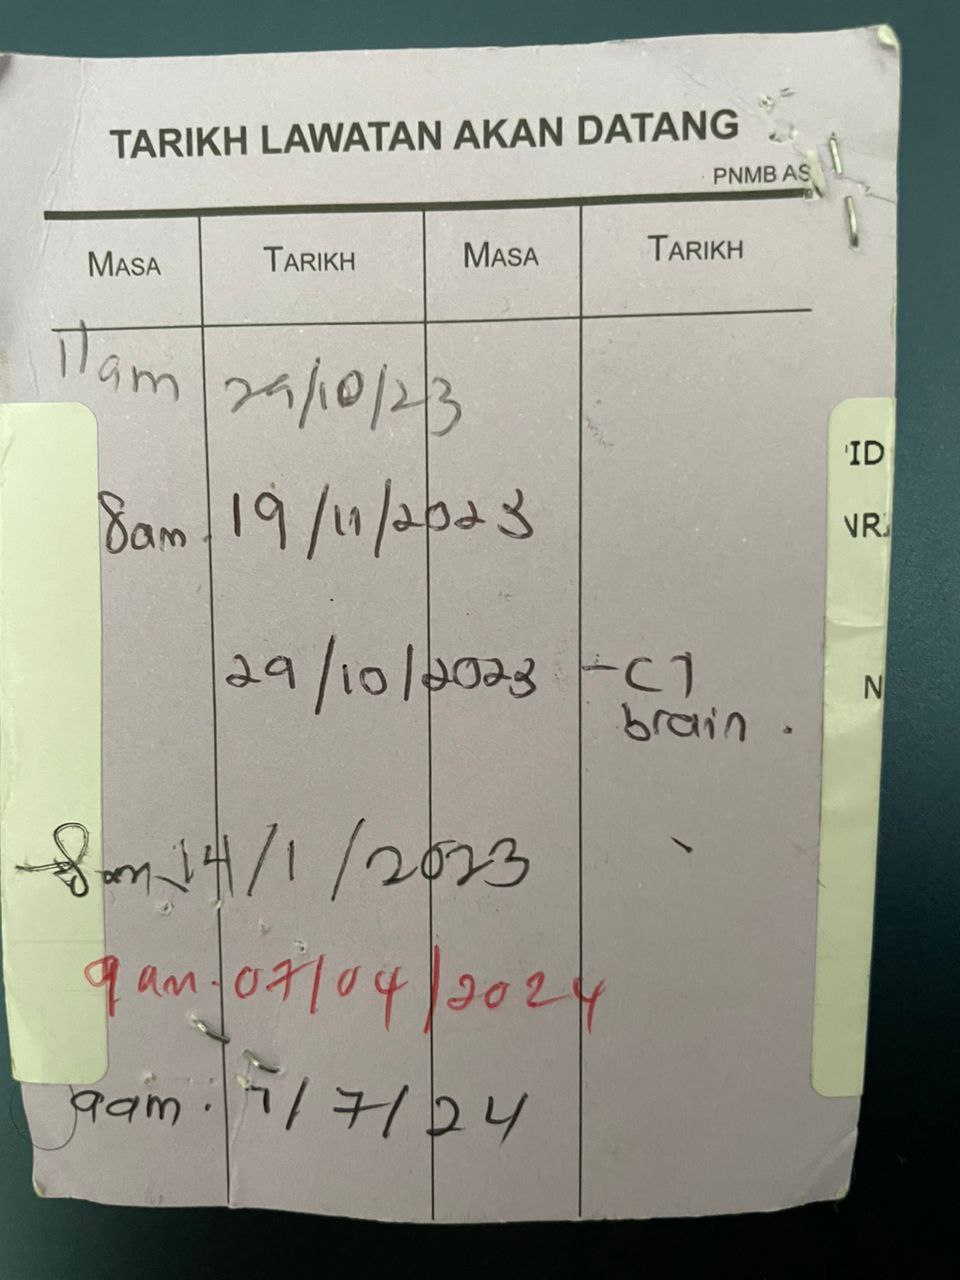 TARIKH LAWATAN AKAN DATANG
PNMB AS
MASA TARIKH MASA TARIKH
11am 29/10/23
8am. 19/11/2023
29/10/2023 - CT
brain.
8am. 14/1/2023
9am. 07/04/2024
9am. 7/7/24
'ID
NR
N